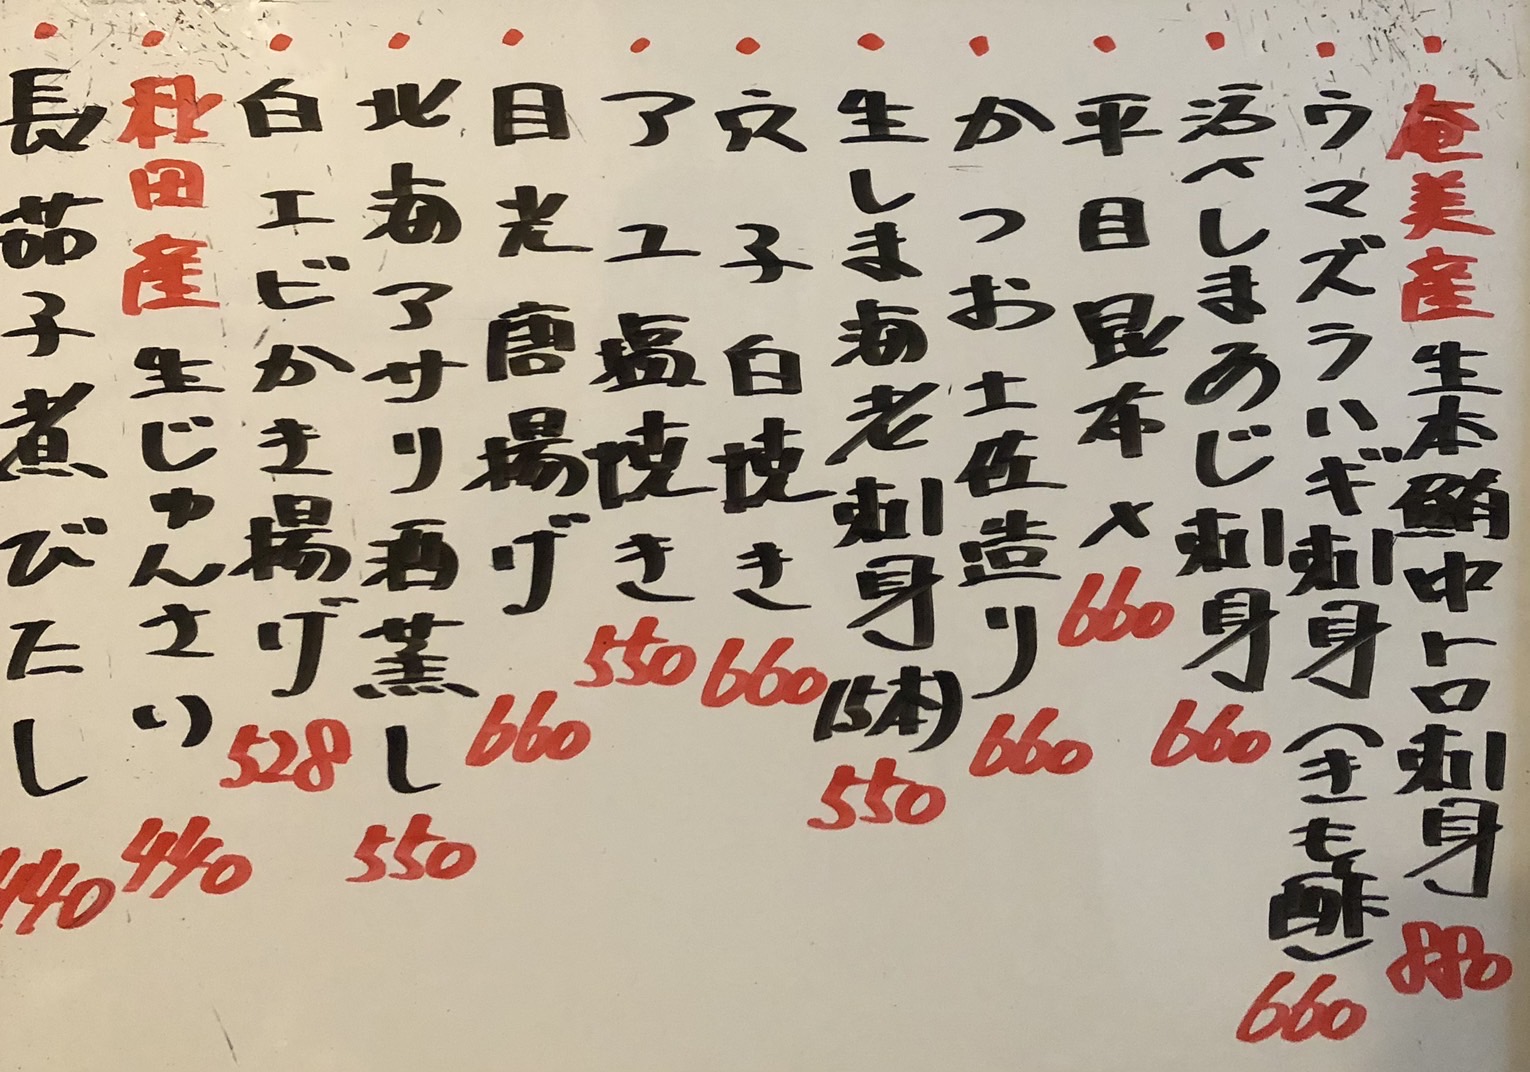 ・奄美産生本鮪中トロ刺身 880
・ウマズラハギ刺身(きも酢) 660
・活〆しまあじ刺身 660
・平目昆布〆 660
・かつお土佐造り 660
・生しま海老刺身(15本) 550
・穴子白焼き 660
・アユ塩焼き 550
・目光唐揚げ 660
・北海アサリ酒蒸し 550
・白エビかき揚げ 528
・秋田産生じゅんさい 440
・長茄子煮びたし 440